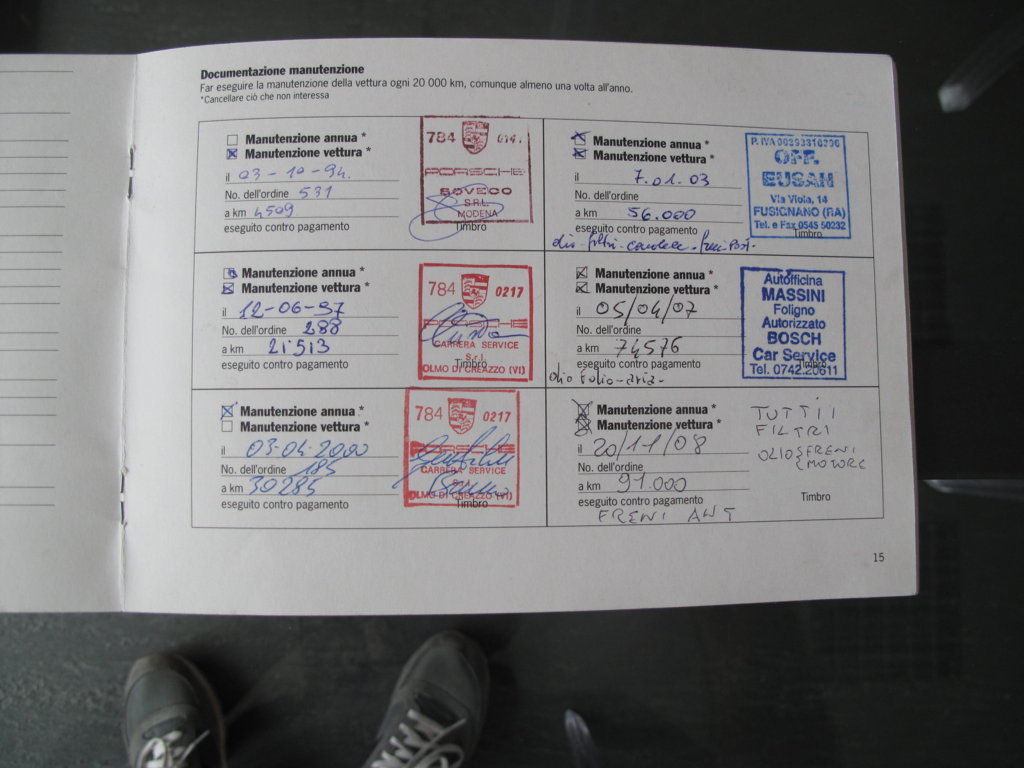 Documentazione manutenzione
Far eseguire la manutenzione della vettura ogni 20 000 km, comunque almeno una volta all'anno.
*Cancellare ciò che non interessa
Manutenzione annua *
Manutenzione vettura *
il 03-10-94.
No. dell'ordine 531
a km 4509
eseguito contro pagamento
784 014.
PORSCHE
BOVECO
S.R.L.
MODENA
Timbro
Manutenzione annua *
Manutenzione vettura *
il 12-06-97
No. dell'ordine 288
a km 21'513
eseguito contro pagamento
784 0217
CARRERA SERVICE
S.r.l.
OLMO DI CREAZZO (VI)
Timbro
Manutenzione annua *
Manutenzione vettura *
il 03-04-2000
No. dell'ordine 185
a km 30285
eseguito contro pagamento
784 0217
CARRERA SERVICE
S.r.l.
OLMO DI CREAZZO (VI)
Timbro
Manutenzione annua *
Manutenzione vettura *
il 7.01.03
No. dell'ordine
a km 56.000
eseguito contro pagamento
olio-filtri-candele-freni Post.
P. IVA
OFF.
EUSAN
Via Viola, 14
FUSIGNANO (RA)
Tel. e Fax 0545 50232
Timbro
Manutenzione annua *
Manutenzione vettura *
il 05/04/07
No. dell'ordine
a km 74576
eseguito contro pagamento
olio Folio-aria-
Autofficina
MASSINI
Foligno
Autorizzato
BOSCH
Car Service
Tel. 0742.20611
Timbro
Manutenzione annua *
Manutenzione vettura *
il 20/11/08
No. dell'ordine
a km 91.000
eseguito contro pagamento
FRENI ANT
TUTTI I
FILTRI
OLIO FRENI
MOTORE
Timbro
15